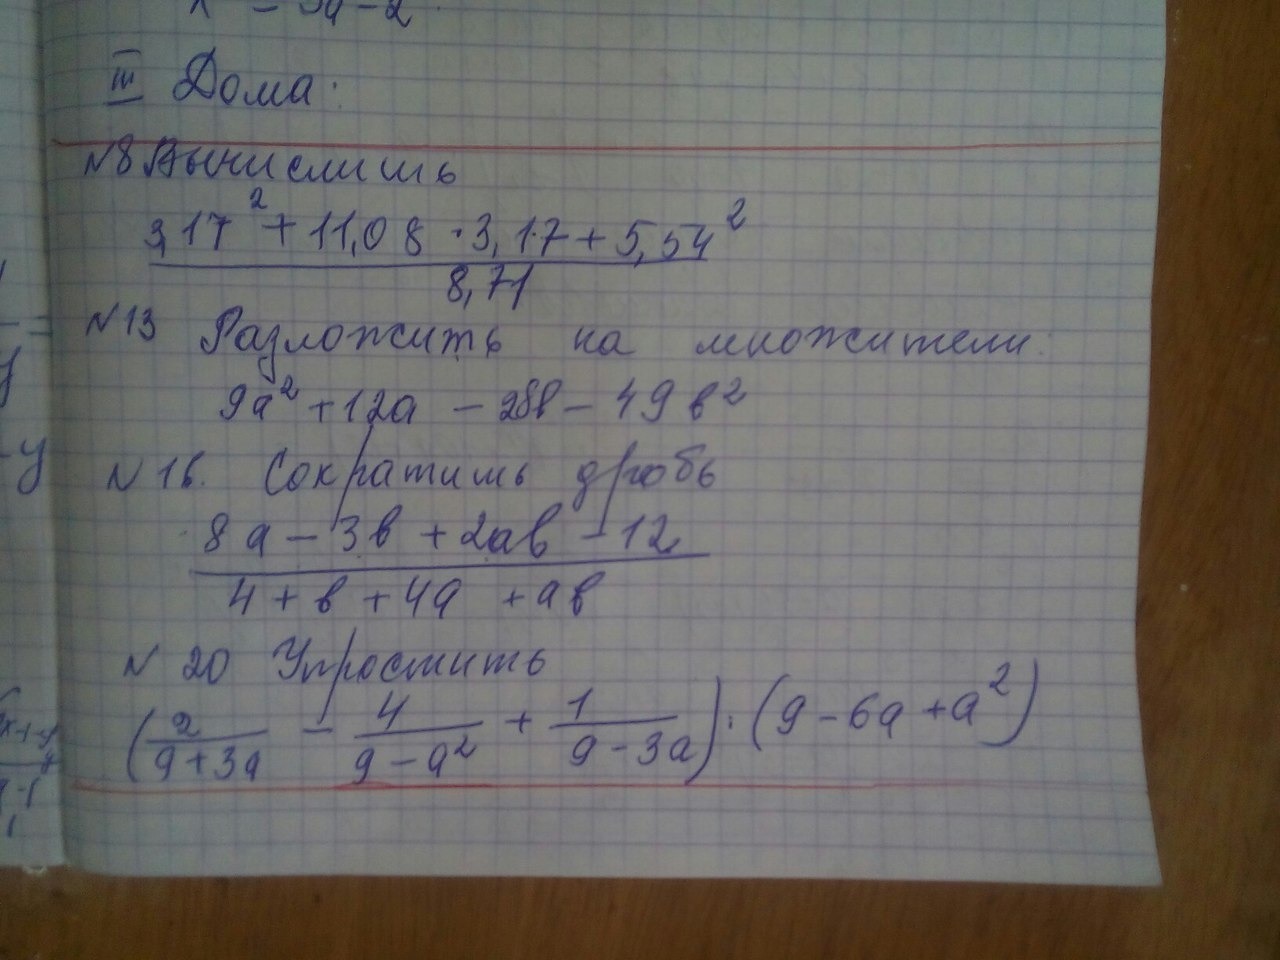 x = 3a - 2
III Дома:
№8 Вычислить
3,17² + 11,08 · 3,17 + 5,54²
8,71
№13 Разложить на множители:
9a² + 12a - 28в - 49в²
№16. Сократить дробь
8a - 3в + 2aв - 12
4 + в + 4a + aв
№20 Упростить
(2/(9+3a) - 4/(9-a²) + 1/(9-3a)) · (9 - 6a + a²)